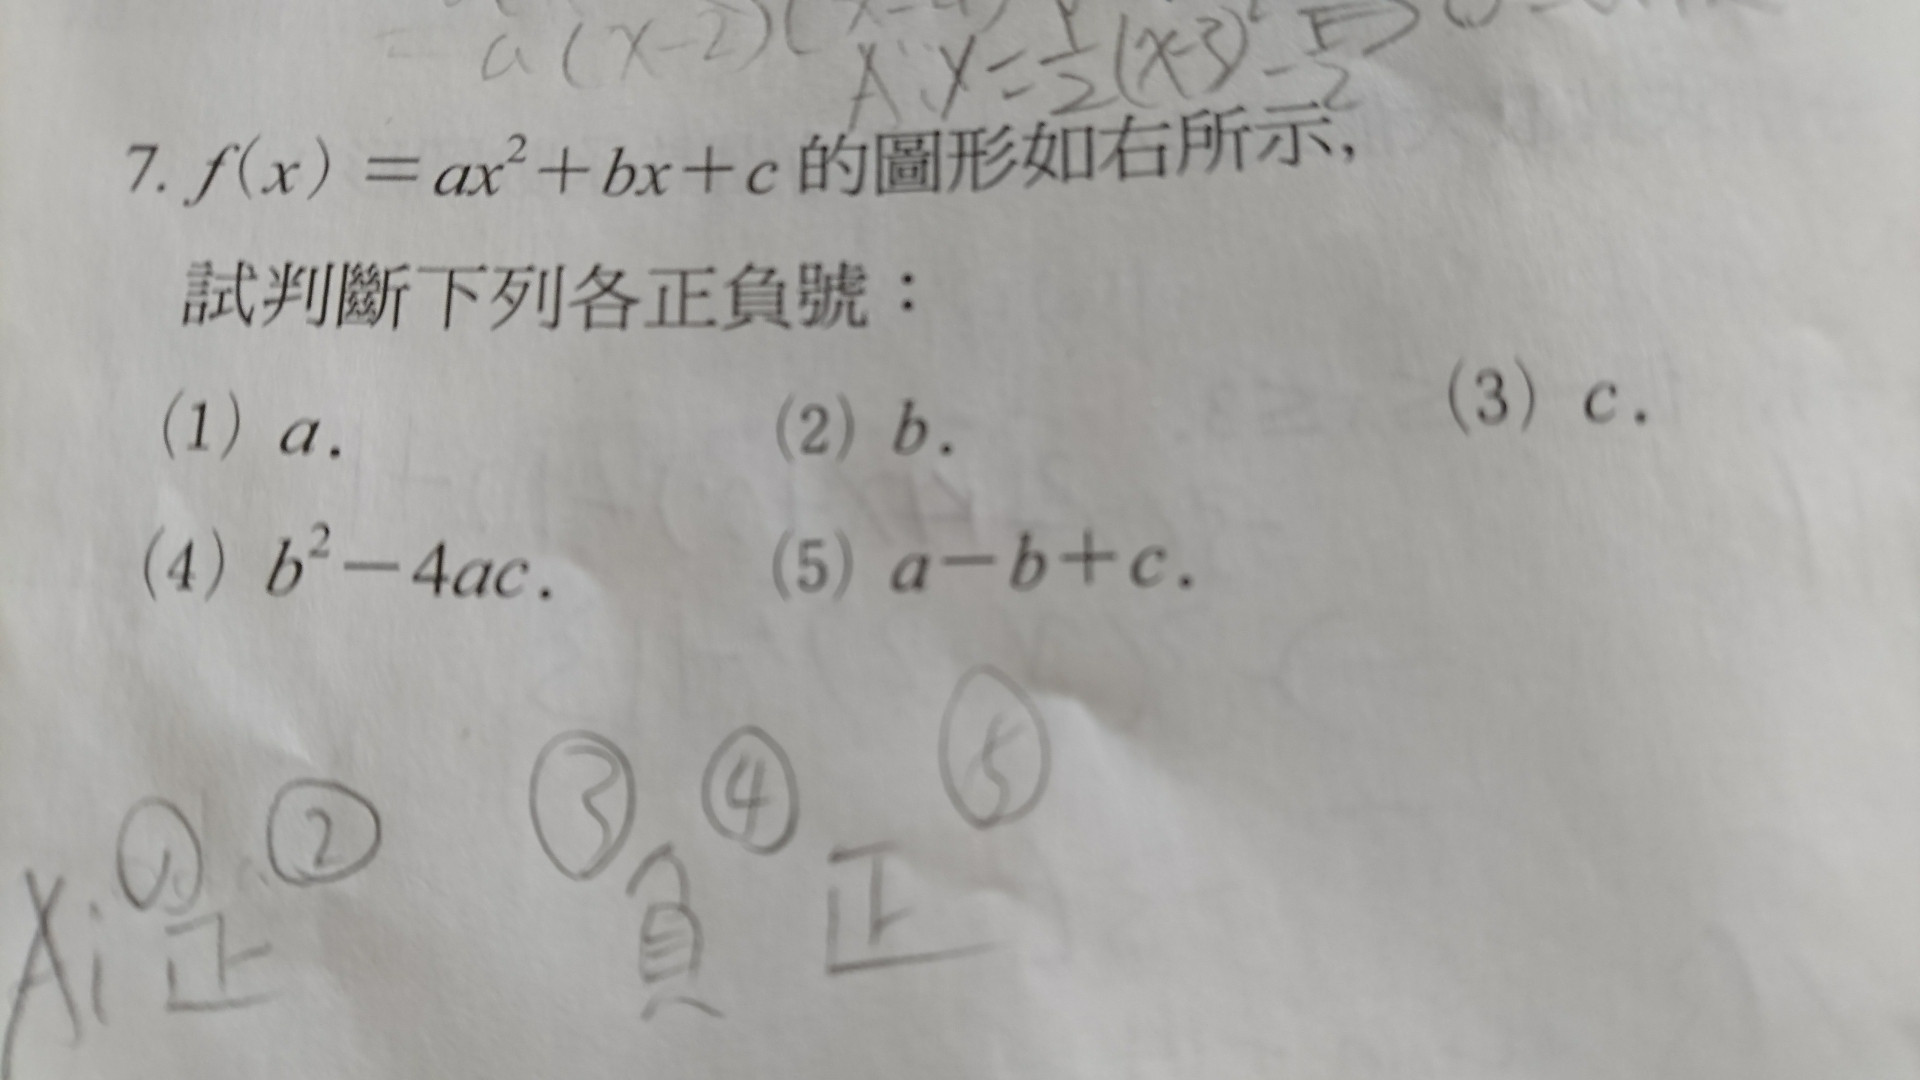 = a(x-2)(x-4)
A: y=½(x-3)²-2
7. f(x) =ax²+bx+c 的圖形如右所示,
試判斷下列各正負號：
(1) a. (2) b. (3) c.
(4) b²-4ac. (5) a-b+c.
① ② ③ ④ ⑤
A: 正 負 正